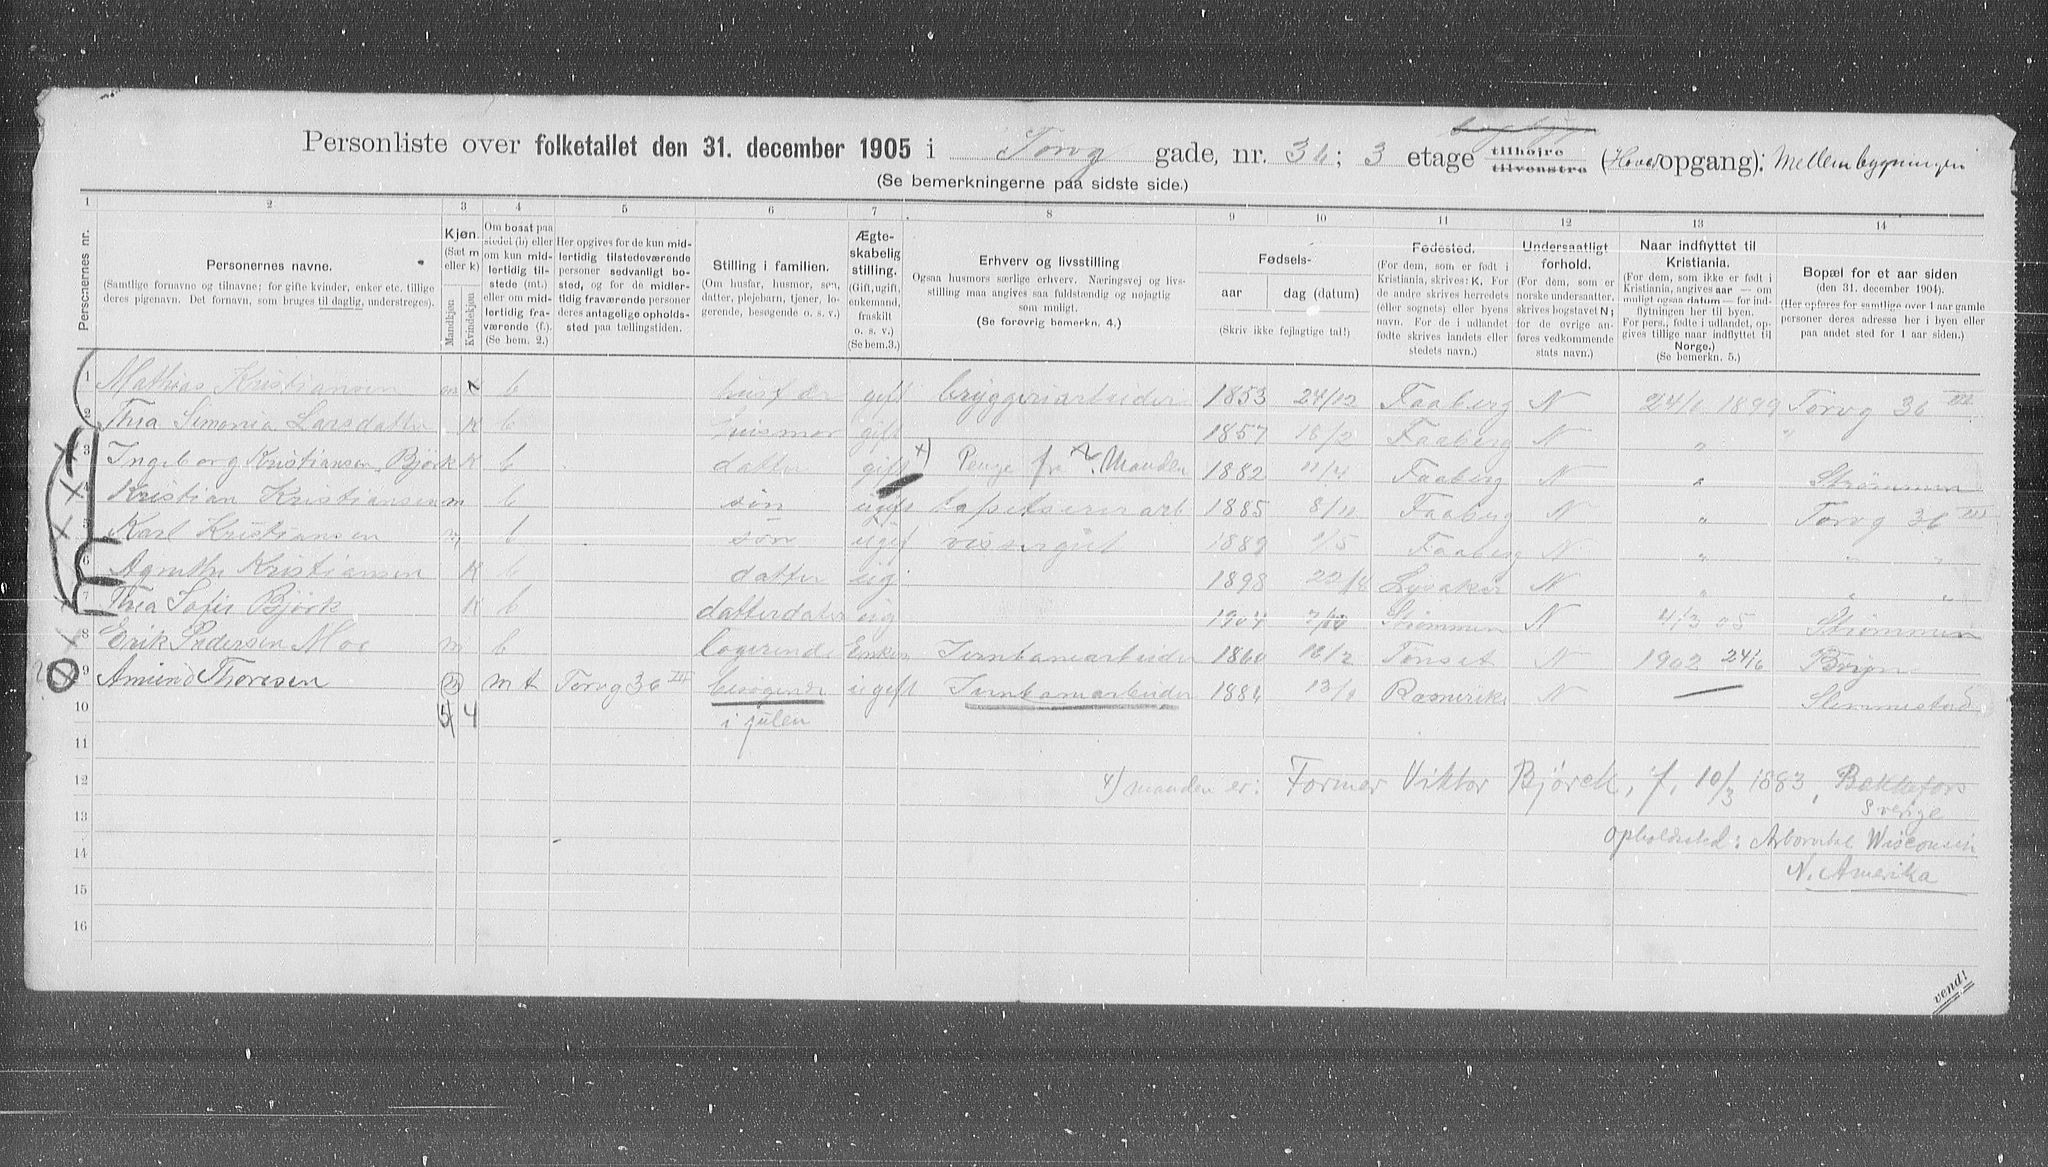 Personliste over folketallet den 31. december 1905 i Torvg gade, nr. 36; 3 etage tilhøjre tilvenstre (Hoved opgang): Mellembygningen
(Se bemerkningerne paa sidste side.)
1 2 3 4 5 6 7 8 9 10 11 12 13 14
Personernes nr.
Personernes navne.
(Samtlige fornavne og tilnavne; for gifte kvinder, enker etc. tillige deres pigenavn. Det fornavn, som bruges til daglig, understreges).
Kjøn.
(Sæt m eller k)
Mandkjøn
Kvindekjøn.
Om bosat paa stedet (b) eller om kun midlertidig tilstede (mt.) eller om midlertidig fraværende (f.). (Se bem. 2.)
Her opgives for de kun midlertidig tilstedeværende personer sedvanligt bosted, og for de midlertidig fraværende personer deres antagelige opholdssted paa tællingstiden.
Stilling i familien.
(Om husfar, husmor, søn, datter, plejebarn, tjener, logerende, besøgende o. s. v.)
Ægteskabelig stilling.
(Gift, ugift, enkemand, fraskilt o. s. v.) (Se bem. 3.)
Erhverv og livsstilling
Ogsaa husmors særlige erhverv. Næringsvej og livsstilling maa angives saa fuldstændig og nøjagtig som muligt.
(Se forøvrig bemerkn. 4.)
Fødsels-
aar
dag (datum)
(Skriv ikke fejlagtige tal!)
Fødested.
(For dem, som er født i Kristiania, skrives: K. For de andre skrives herredets (eller sognets) eller byens navn. For de i udlandet fødte skrives landets eller stedets navn.)
Undersaatligt forhold.
(For dem, som er norske undersaatter, skrives bogstavet N; for de øvrige anføres vedkommende stats navn.)
Naar indflyttet til Kristiania.
(For dem, som ikke er født i Kristiania, angives aar — om muligt ogsaa datum — for indflytningen her til byen. For pers., fødte i udlandet, opgives tillige naar indflyttet til Norge.)
(Se bemerkn. 5.)
Bopæl for et aar siden
(den 31. december 1904).
(Her opføres for samtlige over 1 aar gamle personer deres adresse her i byen eller paa andet sted for 1 aar siden.)
1 Mathias Kristiansen m b husfar gift bryggeriarbeider 1853 24/12 Faaberg N 1899 Torvg 36 III
2 Thea Simonia Larsdatter k b husmor gift 1857 18/2 Faaberg N " "
3 Ingeborg Kristiansen, Björk k b datter gift x) Penge fra Manden 1882 11/4 Faaberg N " Strømmen
4 Kristian Kristiansen m b søn ugift tapetsererarb 1885 8/11 Faaberg N " Torvg 36 III
5 Karl Kristiansen m b søn ugif visergut 1889 1/5 Faaberg N " " "
6 Agnethe Kristiansen k b datter ug 1898 22/8 Lysaker N " " "
7 Thea Sofie Björk k b datterdatter ug 1904 Strømmen N 4/3 05 Strømmen
8 Erik Pedersen Moe m b logerende Enkem Jernbanearbeider 1860 16/2 Tønset N 1902 24/6 Bryn
9 Amund Thoresen m mt Torvg 36 III besøgende ugift Jernbanearbeider 1884 Romerike N — Slemmestad
10 5 4 i julen
11
12 x) manden er: Former Viktor Björck, f. 10/3 1883,
13 Sverige
Opholdssted: Wisconsin
14 N. Amerika
15
16
vend!